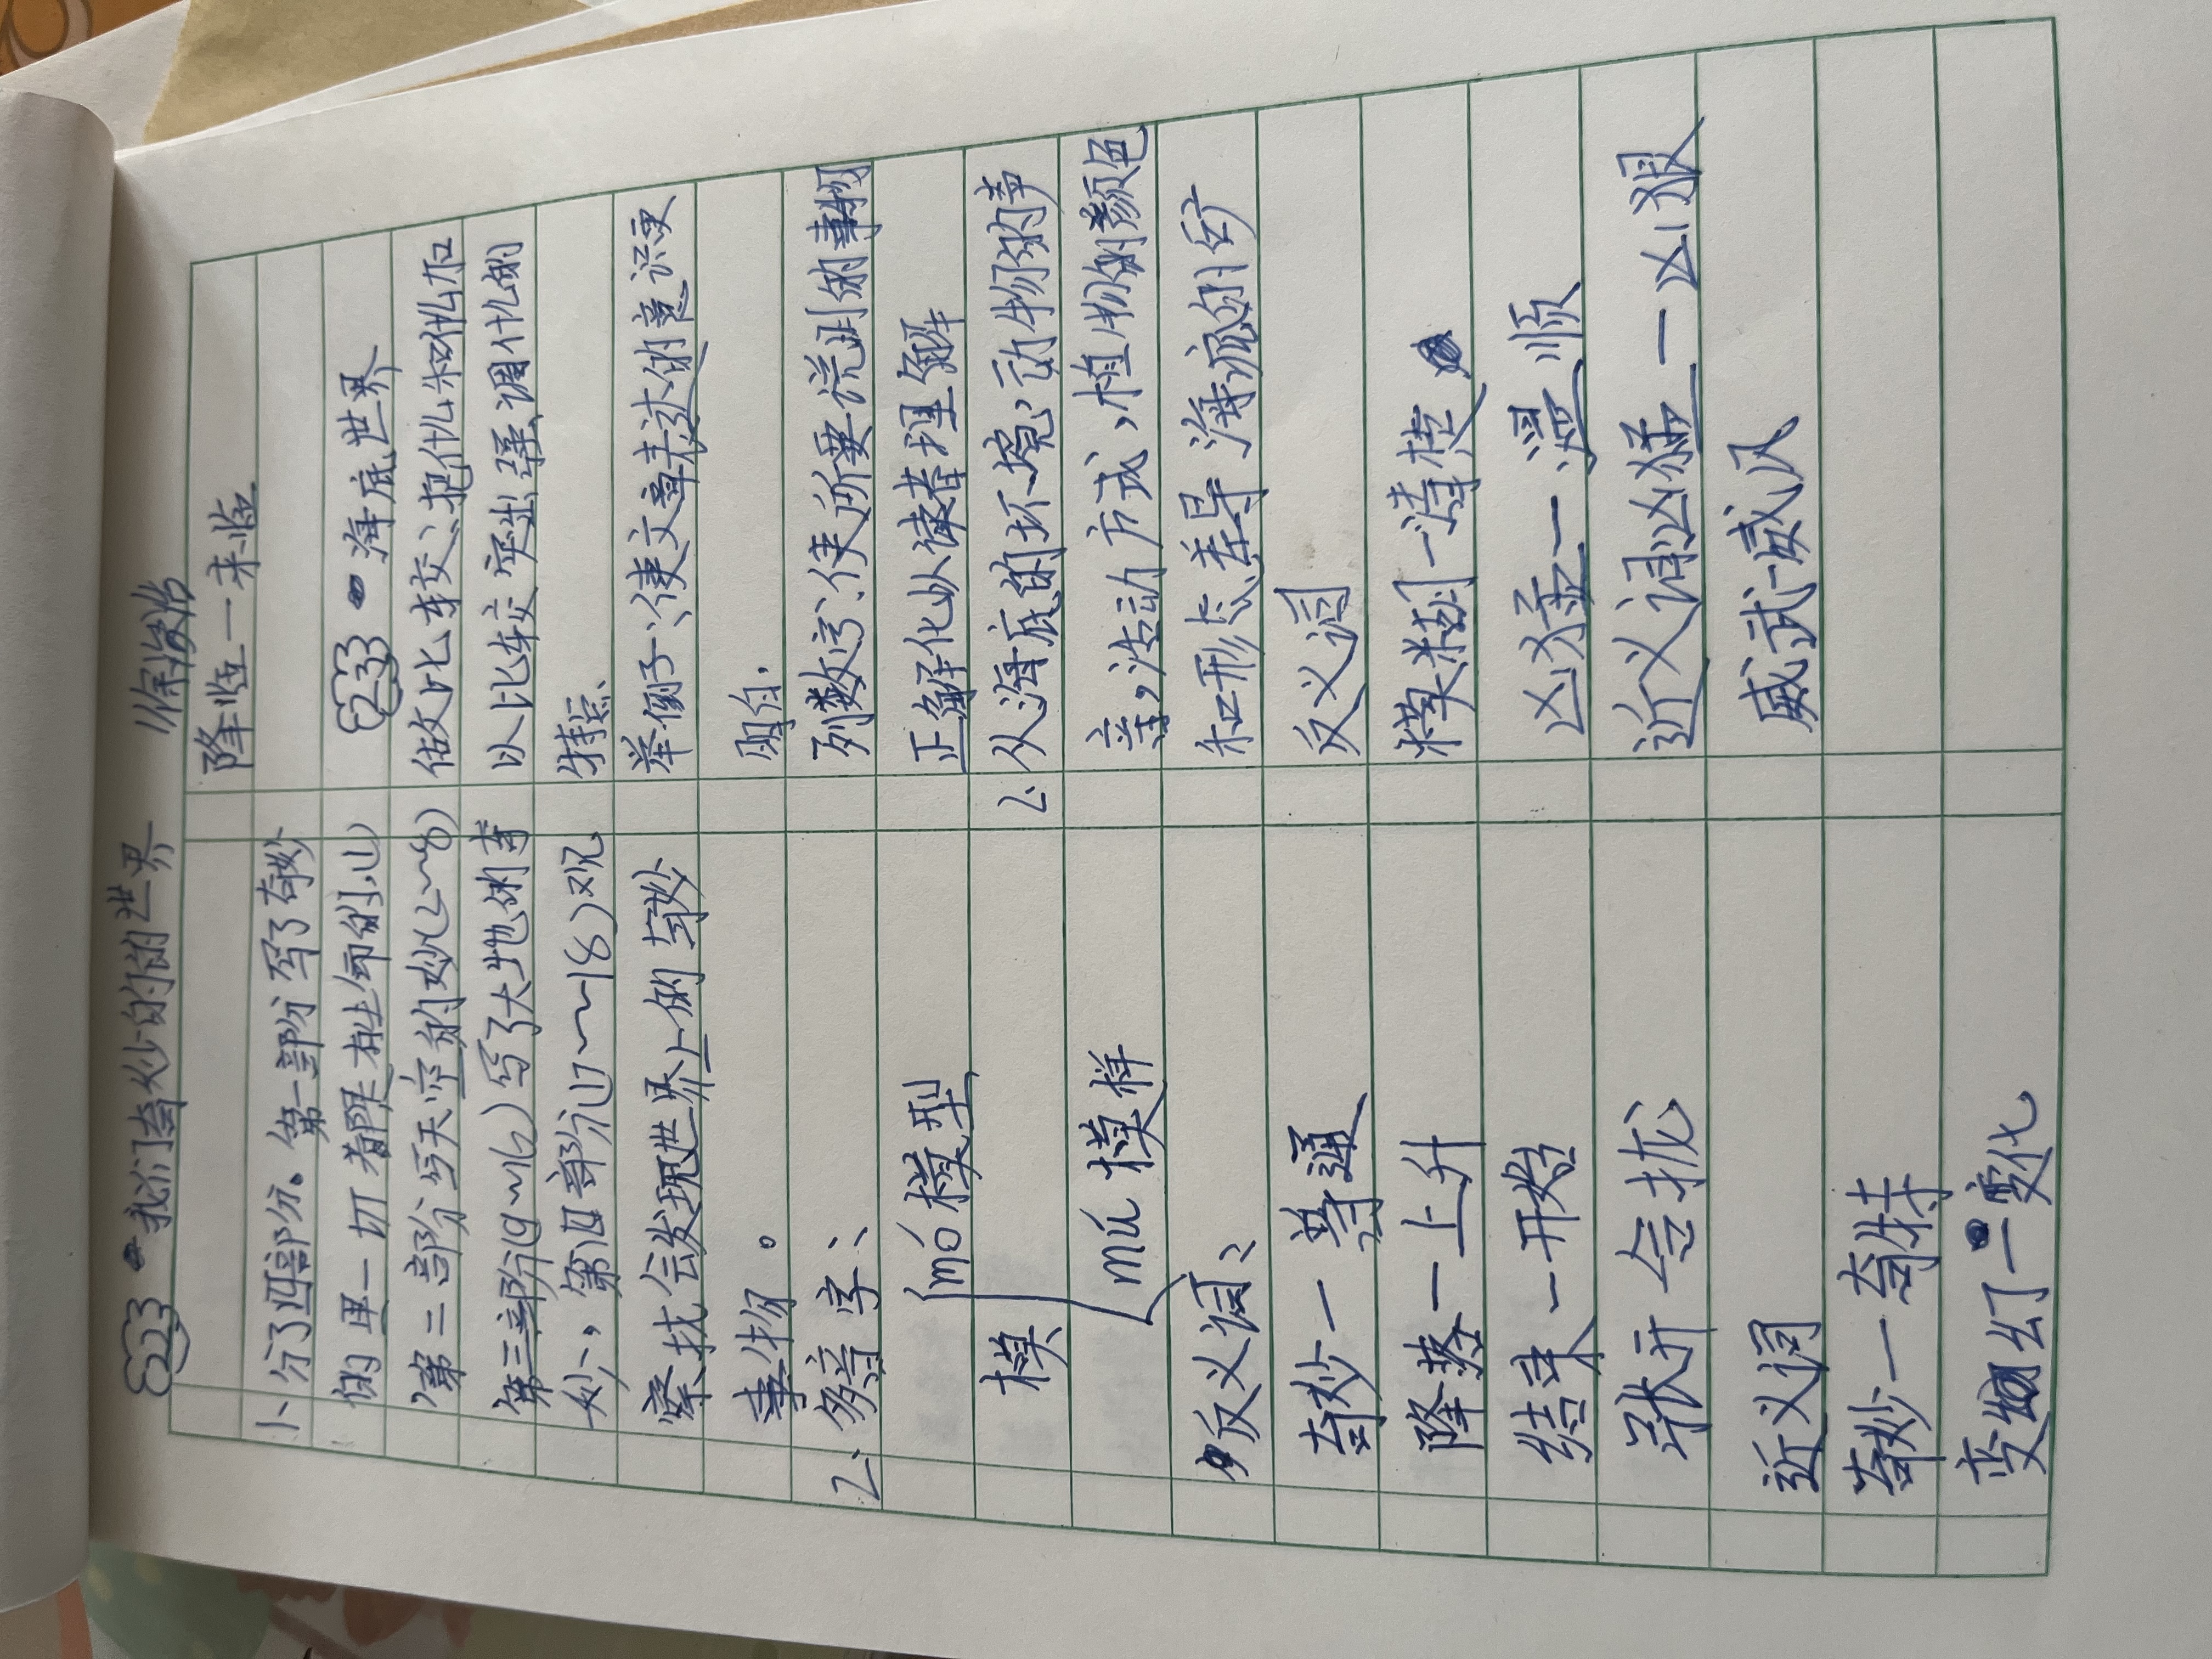 223 我们奇妙的的世界
1、分了四部分。第一部分写了奇妙
的里一切都是有生命的,(1)
第二部分写天空的妙(2~8)
第三部分(9~16)写了大地的奇
妙、,第四部分(17~18)观
察找会发现世界上的奇妙
事物。
2、多音字:
mó模型
模
mú模样
反义词:
奇妙一普通
降落一上升
结束一开始
张开 合拢
近义词
奇妙一奇特
变幻一变化
降临一来临
233 海底世界
做比较:把什么和什么加
以比较突出强调什么的
特点、
举例子:使文章表达的意识更
明白.
列数字:使所要说明的事物
正确化以读者理解
2、从海底的环境,动物的声
音,活动方式,植物的颜色
和形态差异 海底的矿
反义词
模糊一清楚
凶猛一温顺
近义词凶猛一凶狠
威武一威风